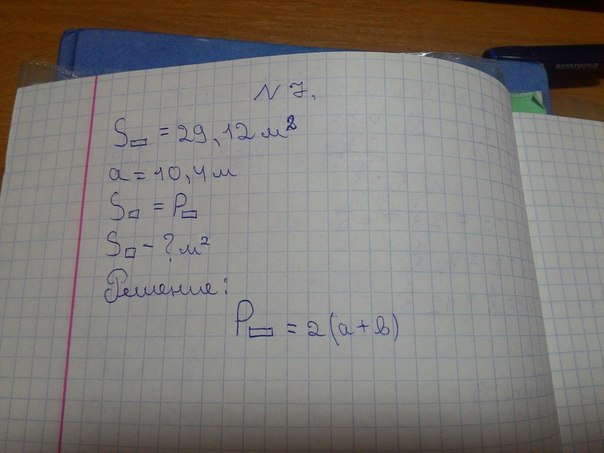 N 7.
S▭ = 29,12 м²
a = 10,4 м
S□ = P▭
S□ - ? м²
Решение:
P▭ = 2(a+b)